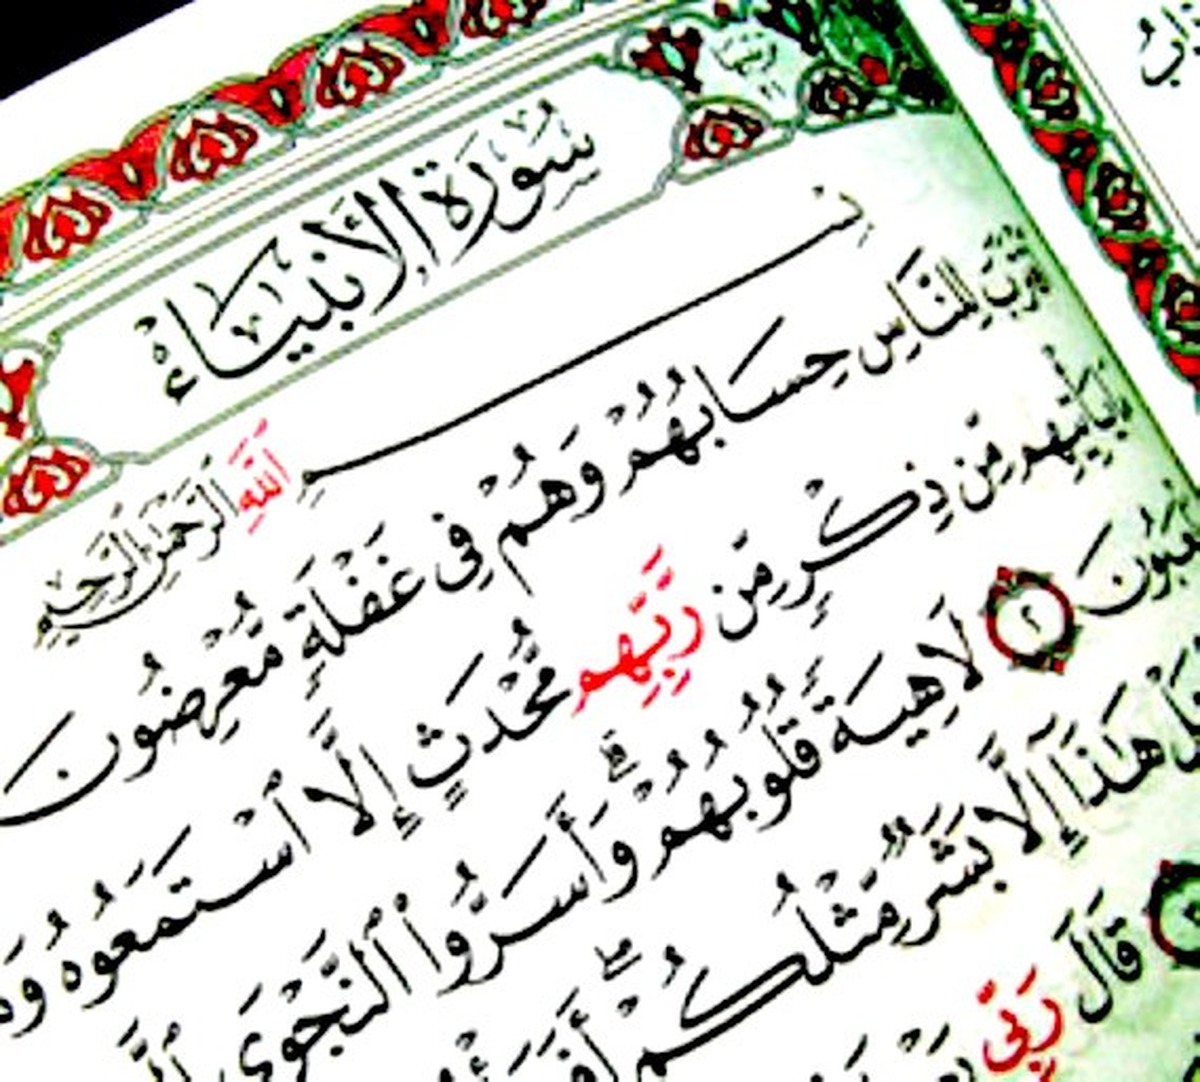 سُورَةُ الأَنبِيَاءِ
بِسْمِ اللَّهِ الرَّحْمَٰنِ الرَّحِيمِ
لِلنَّاسِ حِسَابُهُمْ وَهُمْ فِى غَفْلَةٍ مُّعْرِضُونَ
يَأْتِيهِم مِّن ذِكْرٍ مِّن رَّبِّهِم مُّحْدَثٍ إِلَّا ٱسْتَمَعُوهُ
٢ لَاهِيَةً قُلُوبُهُمْ ۗ وَأَسَرُّوا۟ ٱلنَّجْوَى
هَٰذَآ إِلَّا بَشَرٌ مِّثْلُكُمْ ۖ
قَالَ رَبِّى